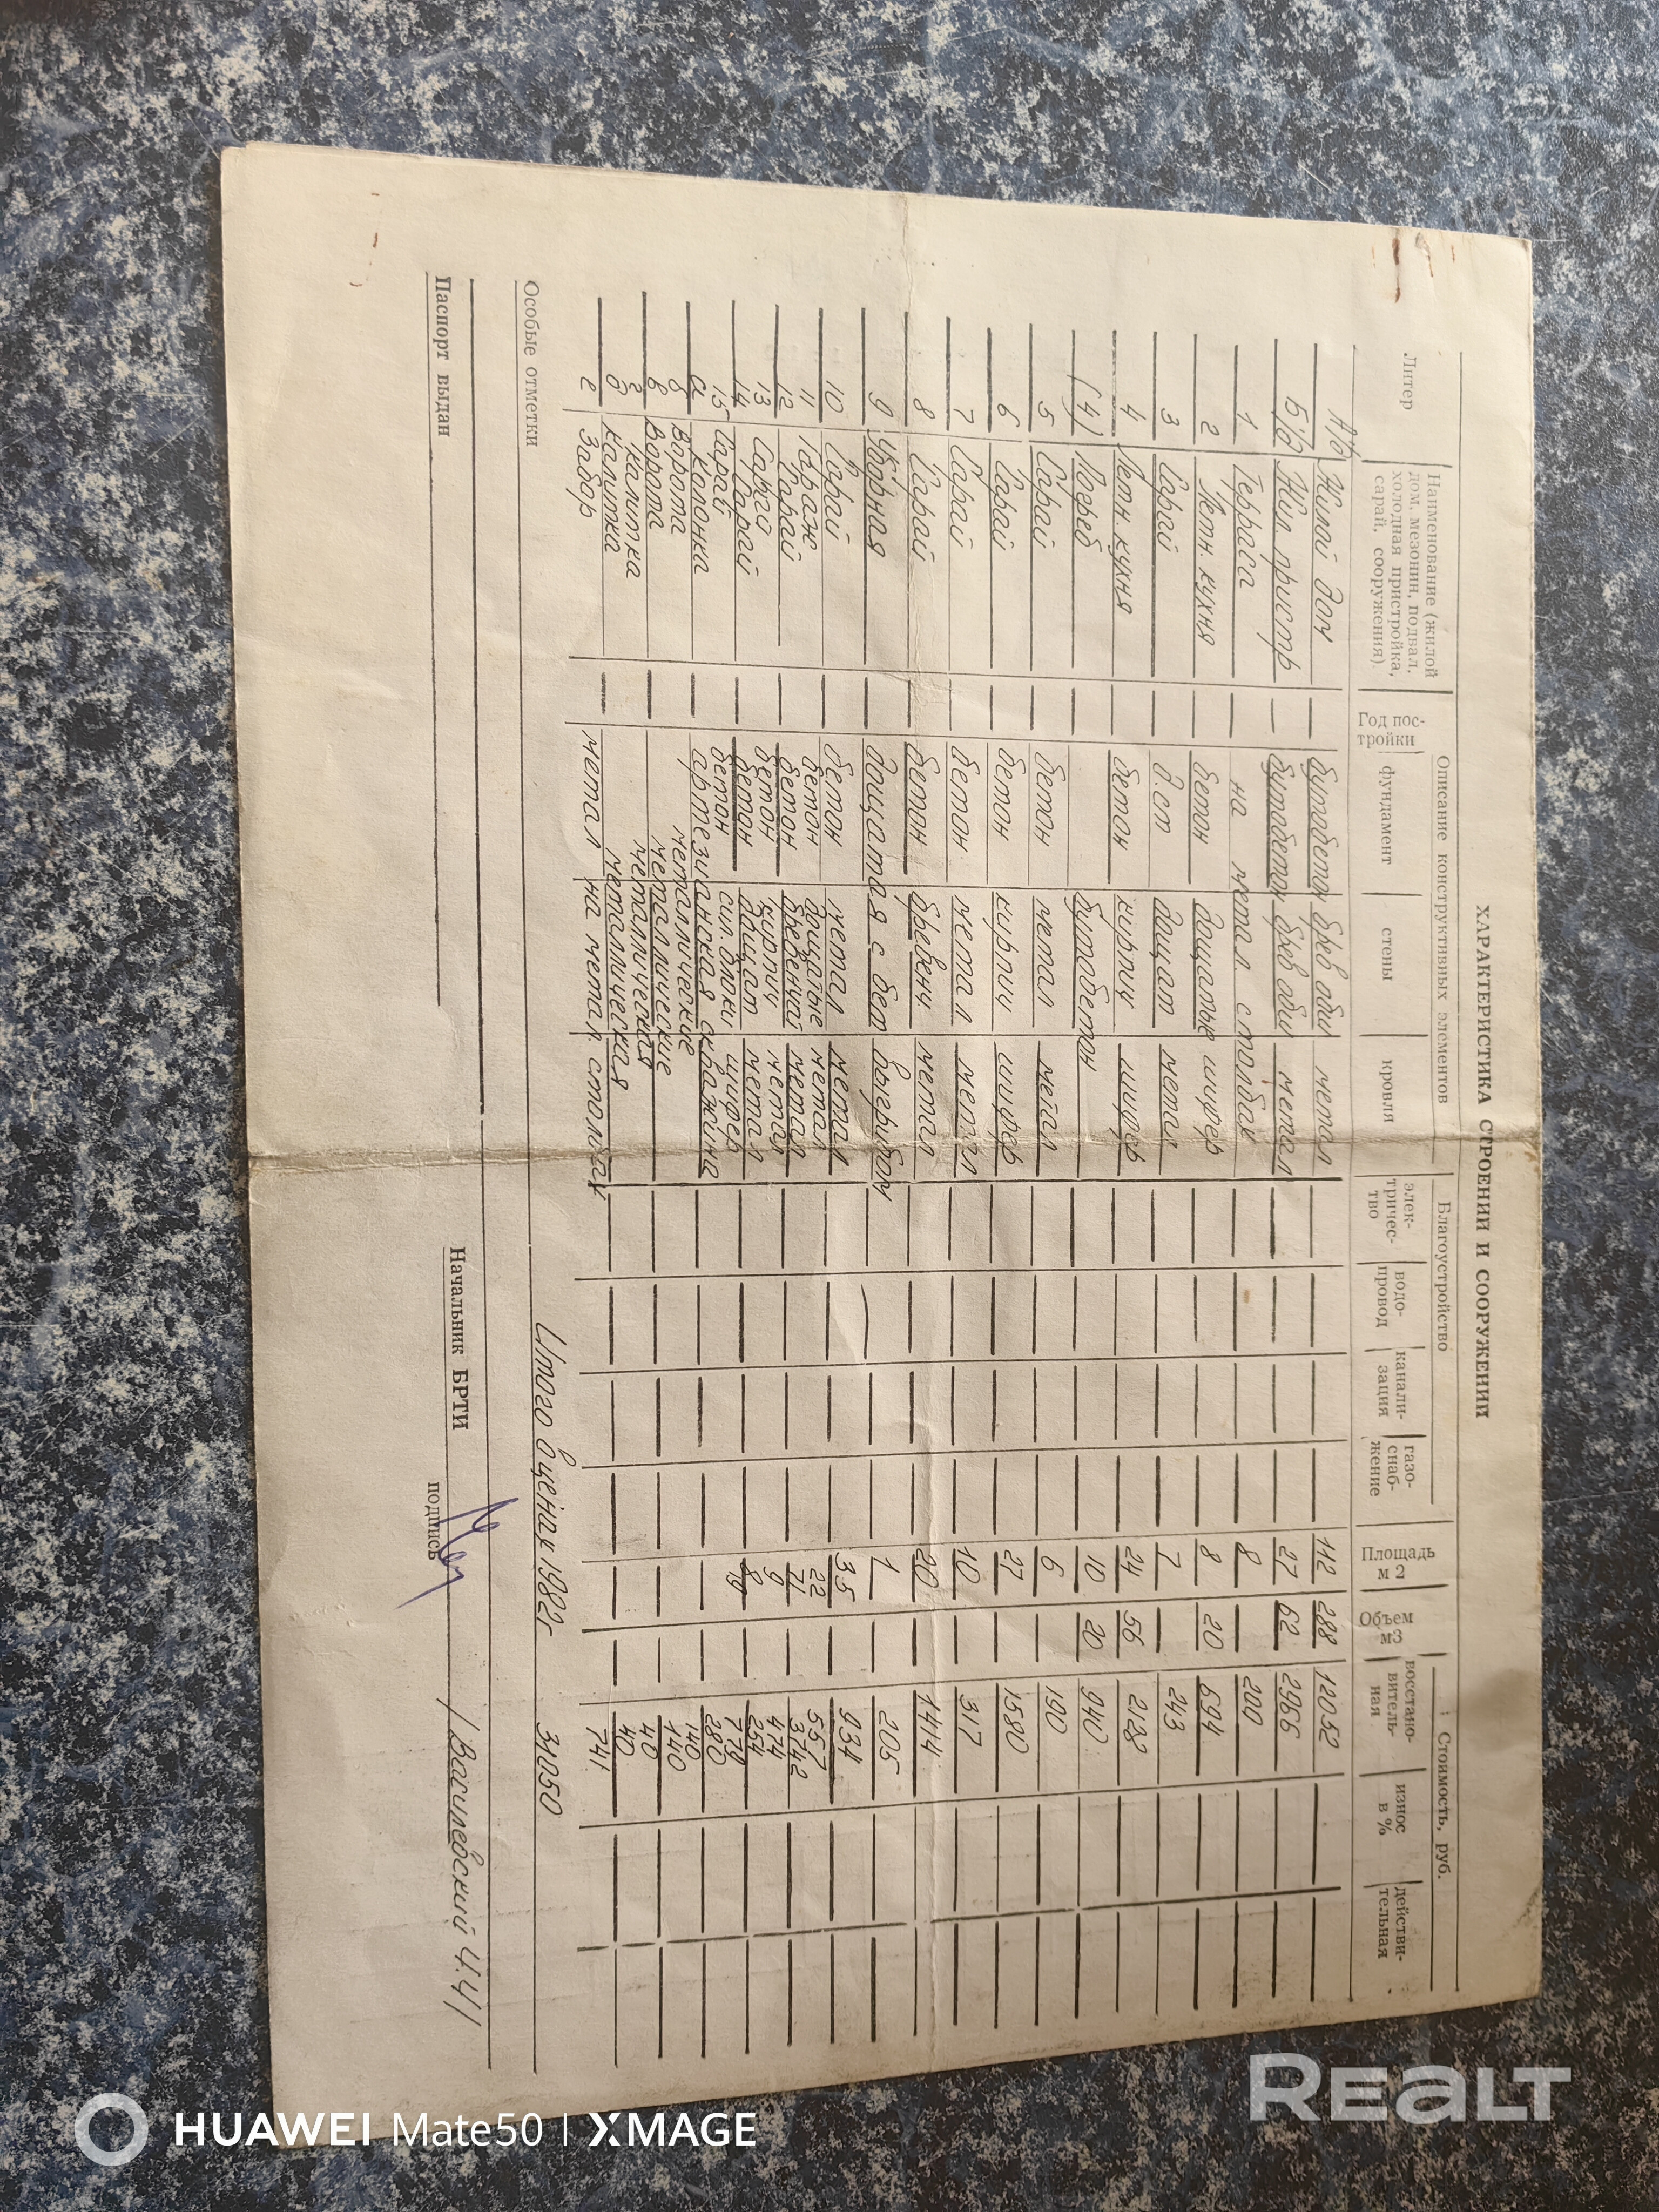 ХАРАКТЕРИСТИКА СТРОЕНИЙ И СООРУЖЕНИЙ
Литер
Наименование (жилой дом, мезонин, подвал, холодная пристройка, сарай, сооружения).
Год постройки
Описание конструктивных элементов
фундамент
стены
кровля
Благоустройство
элек-тричес-тво
водо-провод
канали-зация
газо-снаб-жение
Площадь м 2
Объем м3
Стоимость, руб.
восстано-витель-ная
износ в %
действи-тельная
А/б Жилой дом — бутобетон брев обш метал 112 288 12052
Б/б Жил. пристр — бутобетон брев обш метал 27 62 2966
1 Терраса — на метал столбах 8 200
2 Летн. кухня — бетон дощатые шифер 8 20 694
3 Сарай — д.сп дощат метал 7 243
4 Летн. кухня — бетон кирпич шифер 24 56 2138
(4) Погреб — бутобетон 10 20 940
5 Сарай — бетон метал метал 6 190
6 Сарай — бетон кирпич шифер 27 1580
7 Сарай — бетон метал метал 10 317
8 Сарай — бетон бревенч метал 20 1414
9 Уборная — дощатая с бет выгребом 1 205
10 Сарай — бетон метал метал 35 934
11 Гараж бетон дощатые метал 22 557
12 Сарай — бетон бревенчат метал 71 3742
13 Сарай бетон кирпич метал 9 474
14 Сарай — бетон дощат метал 8 254
15 Сарай бетон сил. блоки шифер 779
а Колонка — артезианская скважина 280
б Ворота металлические 140
в Ворота — металлические 140
г Калитка металлическая 40
д Калитка металлическая 40
е Забор — метал на метал столбах 741
Особые отметки
Итого в ценах 1982г 31050
Паспорт выдан
Начальник БРТИ
/Василевский Ч.Ч/
подпись
REALT
HUAWEI Mate50 | XMAGE